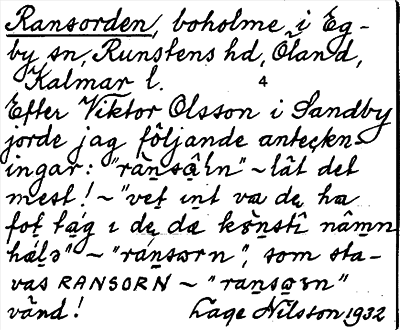 Ransorden, boholme i Eg-
by sn, Runstens hd, Öland,
Kalmar l.
4
Efter Viktor Olsson i Sandby
jorde jag följande anteckn-
ingar: "ränsəɩn" ~ lät det
mest! ~ "vet int va de ha
fot tag i de, da könsti nâmn
hälə" ~ "ransorn", som sta-
vas RANSORN ~ "ransorn"
vänd! Lage Nilsson 1932